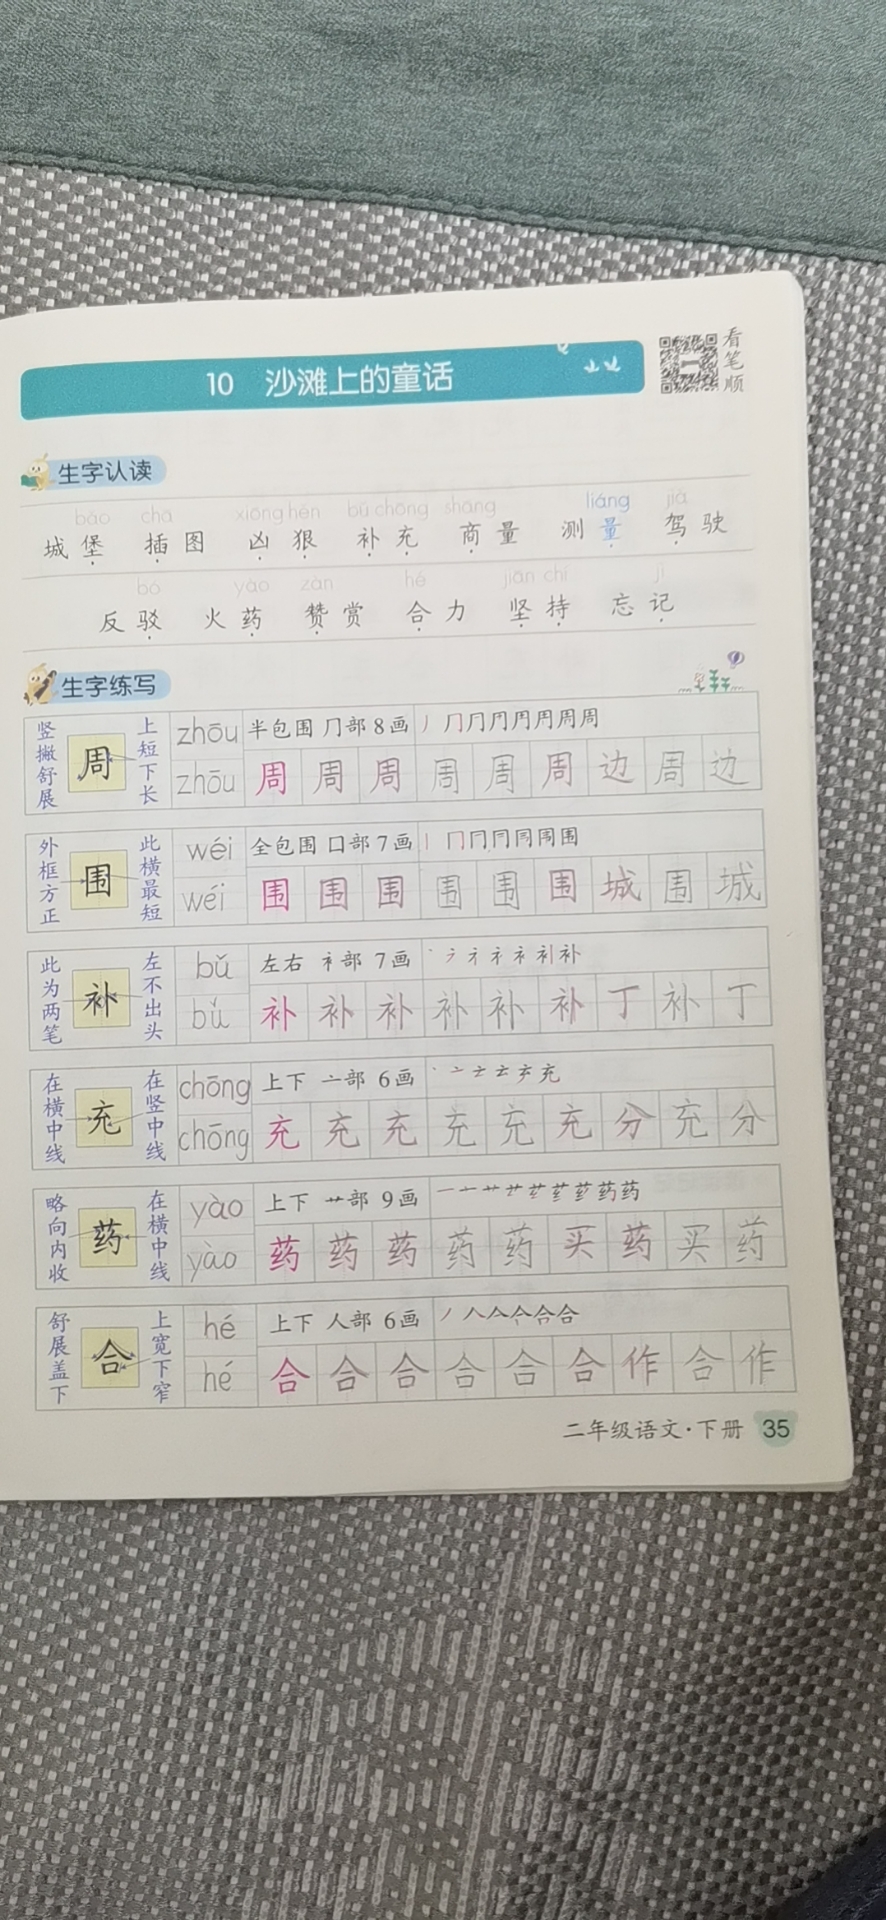 看笔顺
10 沙滩上的童话
生字认读
bǎo chā xiōng hěn bǔ chōng shāng liáng jià
城堡 插图 凶狠 补充 商量 测量 驾驶
bó yào zàn hé jiān chí jì
反驳 火药 赞赏 合力 坚持 忘记
生字练写
竖撇舒展 周 上短下长 zhōu 半包围 冂部 8画
zhōu 周 周 周 周 周 周 边 周 边
外框方正 围 此横最短 wéi 全包围 囗部 7画
wéi 围 围 围 围 围 围 城 围 城
此为两笔 补 左不出头 bǔ 左右 衤部 7画
bǔ 补 补 补 补 补 补 丁 补 丁
在横中线 充 在竖中线 chōng 上下 亠部 6画
chōng 充 充 充 充 充 充 分 充 分
略向内收 药 在横中线 yào 上下 艹部 9画
yào 药 药 药 药 药 买 药 买 药
舒展盖下 合 上宽下窄 hé 上下 人部 6画
hé 合 合 合 合 合 合 作 合 作
二年级语文·下册 35